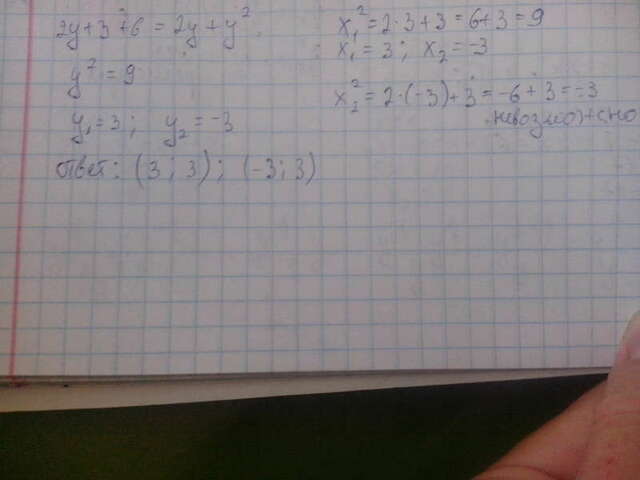 2y+3+6 = 2y+y²
y² = 9
y₁=3; y₂=-3
Ответ: (3; 3); (-3; 3)
x₁² = 2·3+3 = 6+3 = 9
x₁ = 3; x₂ = -3
x₂² = 2·(-3)+3 = -6+3 = -3
невозможно